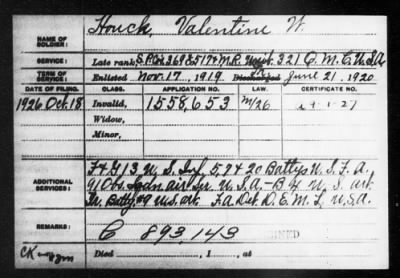 NAME OF SOLDIER: Houck, Valentine W.
SERVICE: Late rank, M.R. Unit 321 Q.M.C. U.S.A.
TERM OF SERVICE: Enlisted Nov. 17, 1919, Discharged June 21, 1920
DATE OF FILING. CLASS. APPLICATION NO. LAW. CERTIFICATE NO.
1926 Oct. 18 Invalid, 1558,653 M/26
Widow,
Minor,
ADDITIONAL SERVICES: F & G 13 U.S. Inf. 5, 2 & 20 Battys U.S.F.A.
91 Obs. Sqdn. Air Ser. U.S.A. - By U.S. Art.
Batty #9 U.S. Art. F.A. Det. D.E.M.L. U.S.A.
REMARKS: C 893,143
Died , 1 , at